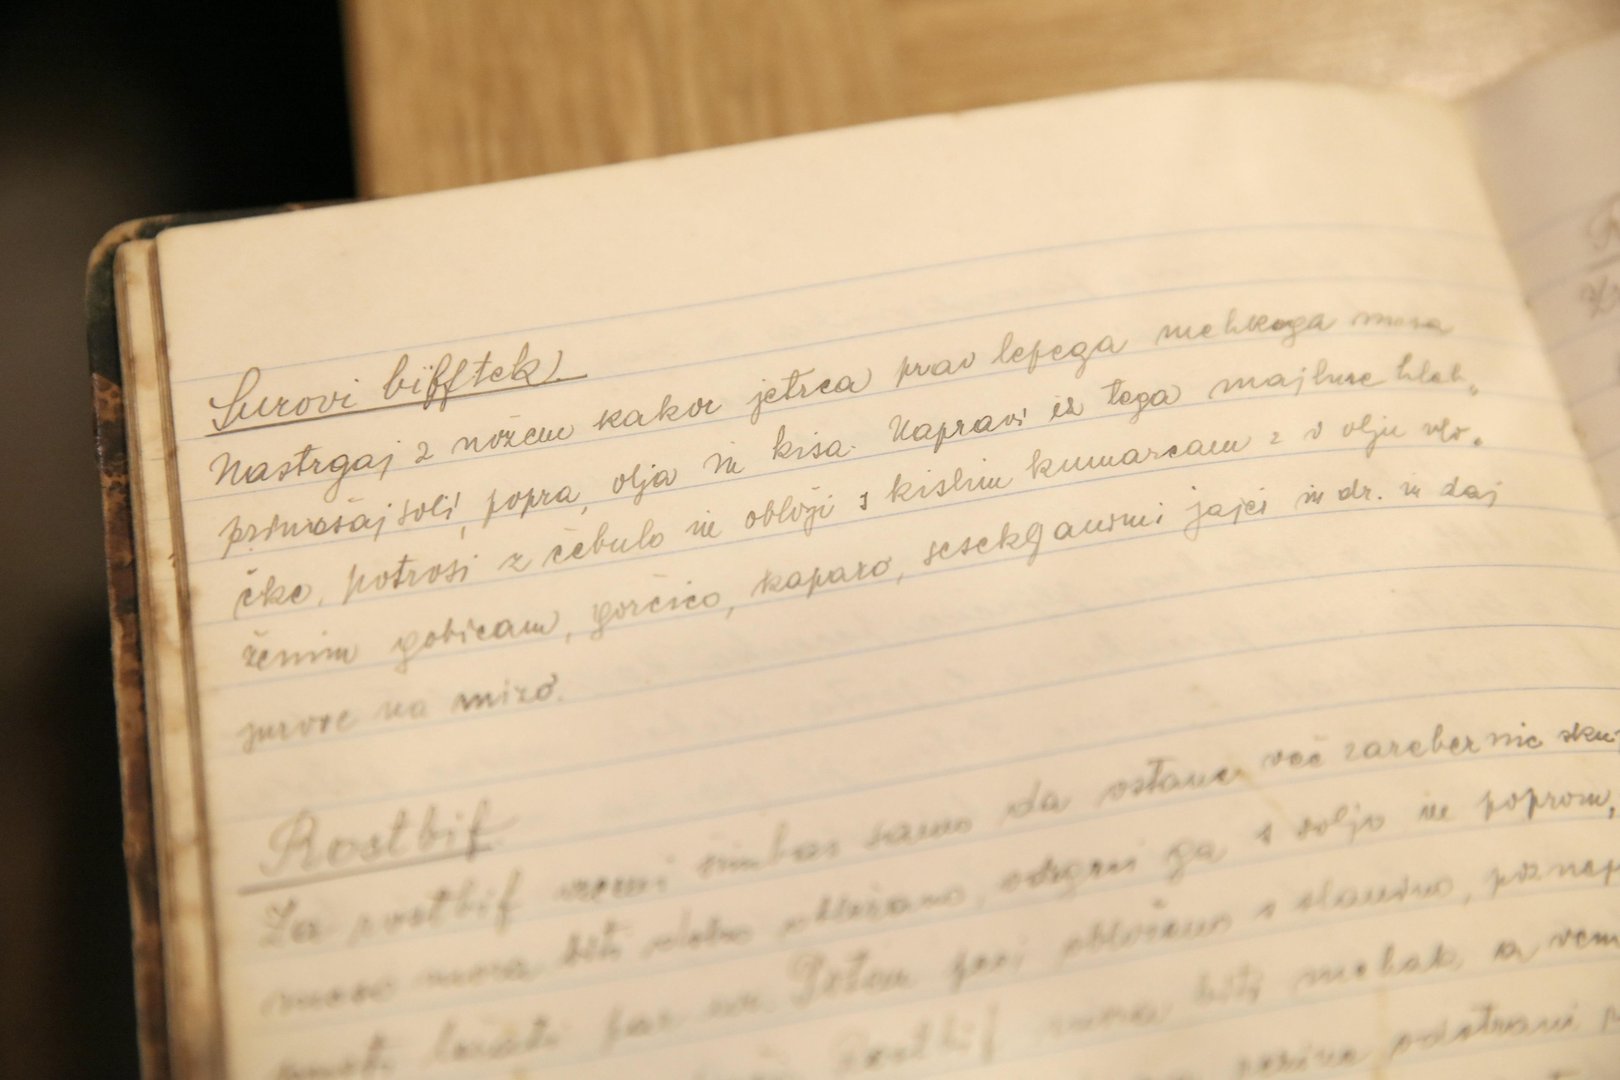 Surovi bifftek.
Nastrgaj z nožem kakor jetrca prav lepega mehkega mesa
primešaj soli, popra, olja in kisa. Napravi iz tega majhne hleb„
čke, potrosi z čebulo in obloži s kislim kumarcam z v olju vlo„
ženim gobicam, gorčico, kaparo, sesekljanimi jajci in dr. in daj
surove na mizo.
Rostbif
Za rostbif vzemi samo da ostane več zarebernic sku-
meso mora biti dobro obležano, odrgni ga s soljo in poprom,
pusti ležati par ur. Potem obloženo s slanino,
Rostbif mora biti mehak, a
odstrani